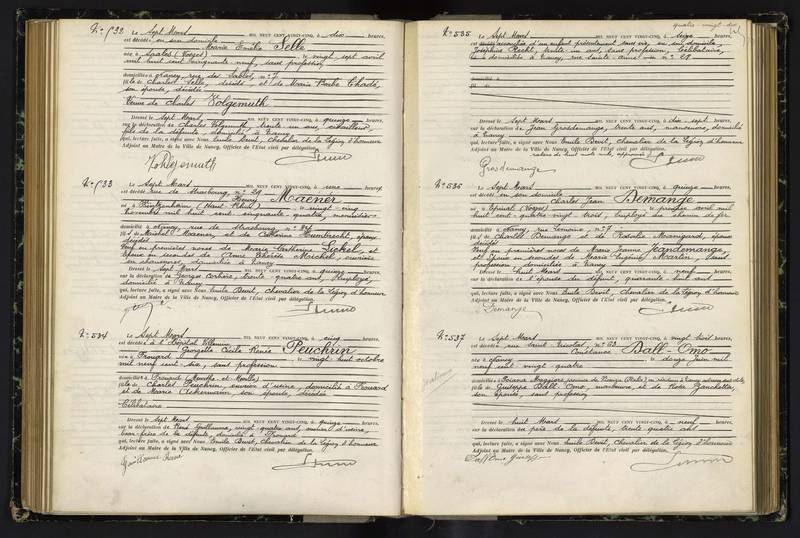 N° 532 Le Sept Mars MIL NEUF CENT VINGT-CINQ, à dix heures,
est décédée en son domicile
Marie Emélie Selle
née à Saales (Vosges) le vingt sept avril
mil huit cent cinquante neuf, sans profession
domiciliée à Nancy, rue des Sables, n° 7
fille de Charles Selle, décédé, et de Marie Barbe
son épouse, décédée
Veuve de Charles Volgemuth
Dressé le Sept Mars MIL NEUF CENT VINGT-CINQ, à quinze heures,
sur la déclaration de Charles Volgemuth, trente un ans,
fils de la défunte, domicilié à Nancy
qui, lecture faite, a signé avec Nous Emile Devit, Chevalier de la Légion d'honneur
Adjoint au Maire de la Ville de Nancy, Officier de l'Etat civil par délégation.
N° 533 Le Sept Mars MIL NEUF CENT VINGT-CINQ, à une heures,
est décédé rue de Strasbourg, n° 29
Henry Maener
né à (Haut-Rhin) le vingt-cinq
novembre mil huit cent cinquante-quatre, menuisier
domicilié à Nancy, rue de Strasbourg, n°
fils de Michel Maener, et de Catherine Humbrecht, époux
décédés
Veuf en premières noces de Marie Catherine Sickel, et
époux en secondes de Anne Thérèse Meichel, ouvrière
en chaussures, domiciliée à Nancy
Dressé le Sept Mars MIL NEUF CENT VINGT-CINQ, à quinze heures,
sur la déclaration de Georges Corbière, trente-quatre ans, employé,
domicilié à Nancy
qui, lecture faite, a signé avec Nous Emile Devit, Chevalier de la Légion d'honneur
Adjoint au Maire de la Ville de Nancy, Officier de l'Etat civil par délégation.
N° 534 Le Sept Mars MIL NEUF CENT VINGT-CINQ, à cinq heures,
est décédée à l'Hôpital Villemin
Georgette Cécile Renée Peuchrin
née à Frouard le vingt-huit octobre
mil neuf cent six, sans profession
domiciliée à Frouard (Meurthe-et-Moselle)
fille de Charles Peuchrin, ouvrier d'usine, domicilié à Frouard
et de Marie Ackermann, son épouse, décédée
Célibataire
Dressé le Sept Mars MIL NEUF CENT VINGT-CINQ, à quinze heures,
sur la déclaration de René Guillaume, vingt-quatre ans, ouvrier d'usine,
beau-frère de la défunte, domicilié à Frouard
qui, lecture faite, a signé avec Nous Emile Devit, Chevalier de la Légion d'honneur
Adjoint au Maire de la Ville de Nancy, Officier de l'Etat civil par délégation.
Guillaume René
quatre vingt dix
N° 535 Le Sept Mars MIL NEUF CENT VINGT-CINQ, à seize heures,
est accouchée d'un enfant présentement sans vie, en son domicile
Joséphine Recht, trente un ans, sans profession, Célibataire,
domiciliée à Nancy, rue Sainte-Anne n° 29
domicilié à
fil de
Dressé le Sept Mars MIL NEUF CENT VINGT-CINQ, à dix-sept heures,
sur la déclaration de Jean Grosdemange, trente ans, manœuvre, domicilié
à Nancy
qui, lecture faite, a signé avec Nous Emile Devit, Chevalier de la Légion d'honneur
Adjoint au Maire de la Ville de Nancy, Officier de l'Etat civil par délégation.
Grosdemange
N° 536 Le Sept Mars MIL NEUF CENT VINGT-CINQ, à quinze heures,
est décédé en son domicile
Charles Jean Demange
né à Epinal (Vosges) le premier avril mil
huit cent quatre-vingt trois, Employé au chemin de fer
domicilié à Nancy, rue n° 7
fils de Charles Demange et de Rosalie Maingard, époux
décédés
Veuf en premières noces de Marie Jeanne Jeandemange,
et époux en secondes de Marie Eugénie Martin, sans
profession, domiciliée à Nancy
Dressé le huit Mars MIL NEUF CENT VINGT-CINQ, à neuf heures,
sur la déclaration de l'épouse du défunt, quarante-huit ans
qui, lecture faite, a signé avec Nous Emile Devit, Chevalier de la Légion d'honneur
Adjoint au Maire de la Ville de Nancy, Officier de l'Etat civil par délégation.
Demange
N° 537 Le Sept Mars MIL NEUF CENT VINGT-CINQ, à vingt trois heures,
est décédée rue Saint-Nicolas, n° 53
Constance Ball-Omo
née à Nancy le douze juin mil
neuf cent vingt-quatre
domiciliée à
fille de Giuseppe Ball-Omo, manœuvre, et de Rosa Zanchetta,
son épouse, sans profession
Dressé le huit Mars MIL NEUF CENT VINGT-CINQ, à neuf heures,
sur la déclaration du père de la défunte, trente-quatre ans
qui, lecture faite, a signé avec Nous Emile Devit, Chevalier de la Légion d'honneur
Adjoint au Maire de la Ville de Nancy, Officier de l'Etat civil par délégation.